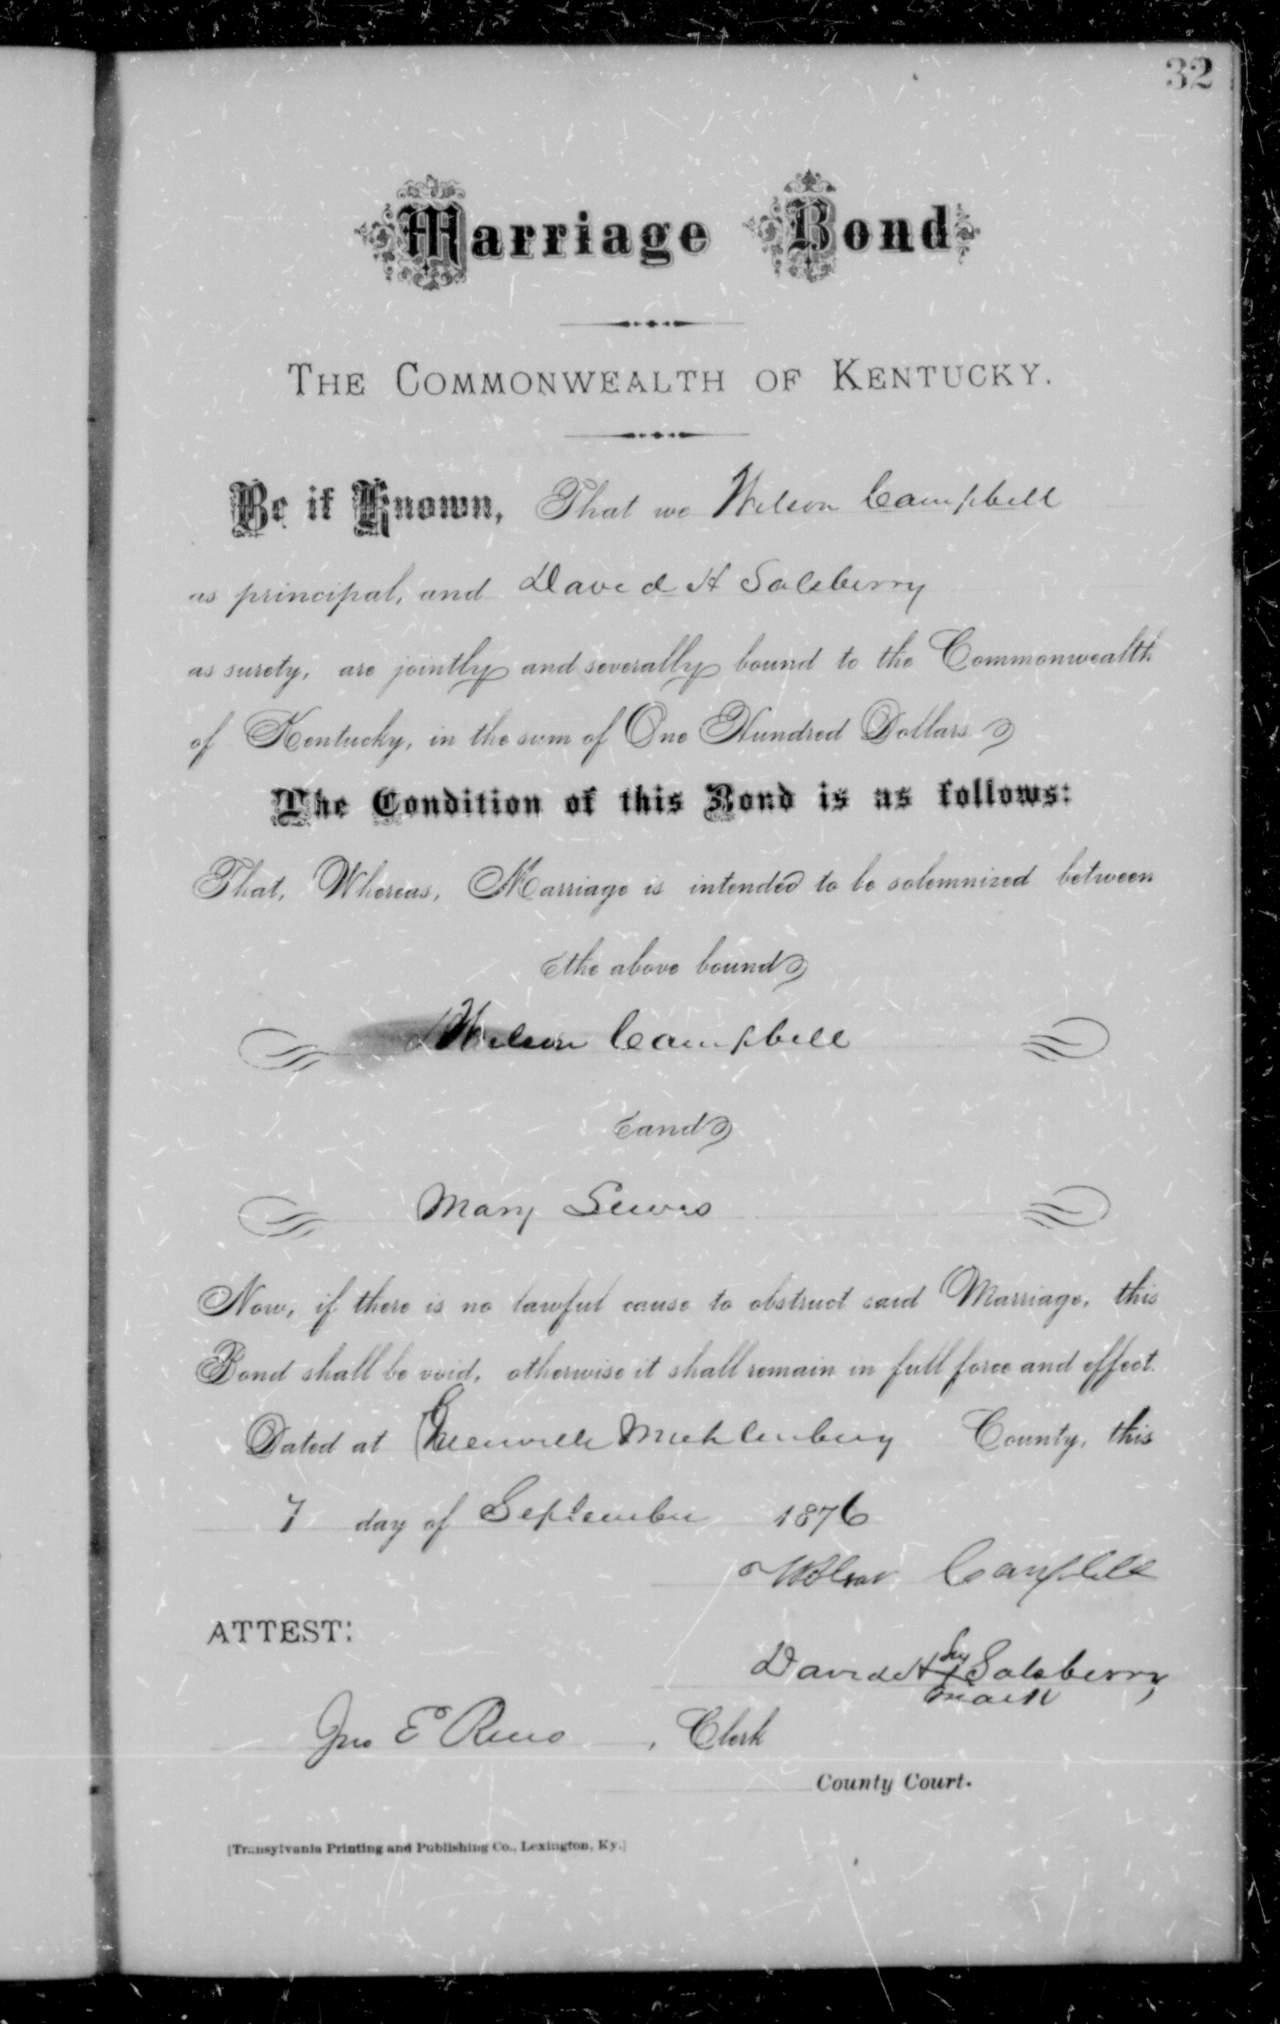 32
Marriage Bond
THE COMMONWEALTH OF KENTUCKY.
Be it Known, That we Wilson Campbell
as principal, and David H Salsberry
as surety, are jointly and severally bound to the Commonwealth
of Kentucky, in the sum of One Hundred Dollars
The Condition of this Bond is as follows:
That, Whereas, Marriage is intended to be solemnized between
the above bound
Wilson Campbell
and
Mary Lewis
Now, if there is no lawful cause to obstruct said Marriage, this
Bond shall be void, otherwise it shall remain in full force and effect.
Dated at Greenville Muhlenberg County, this
7 day of September 1876
Wilson Campbell
ATTEST:
David H his x mark Salsberry
Jno E Reno, Clerk
County Court.
[Transylvania Printing and Publishing Co., Lexington, Ky.]